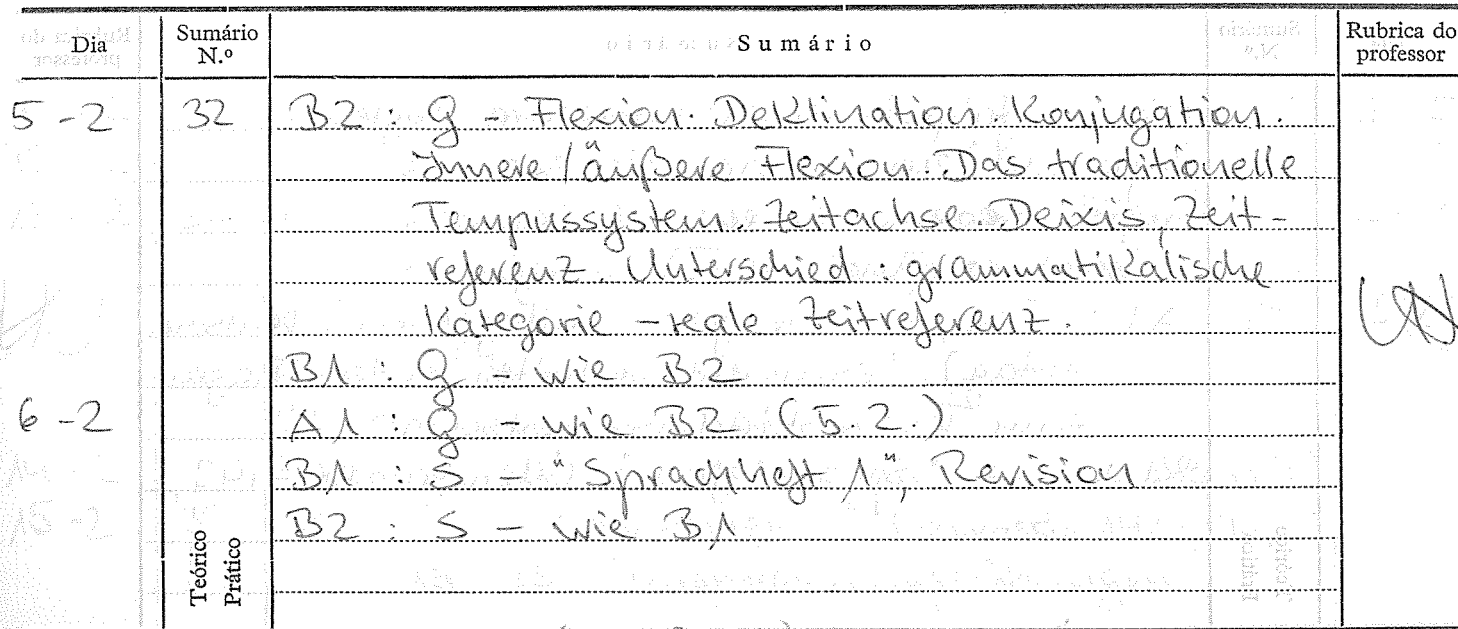 Dia Sumário N.º Sumário Rubrica do professor
5-2 32 B2: G - Flexion. Deklination. Konjugation.
Innere/äußere Flexion. Das traditionelle
Tempussystem. Zeitachse. Deixis, Zeit-
referenz. Unterschied: grammatikalische
Kategorie - reale Zeitreferenz.
B1: G - wie B2
6-2 A1: G - wie B2 (5.2.)
B1: S - "Sprachheft 1", Revision
B2: S - wie B1
Teórico
Prático